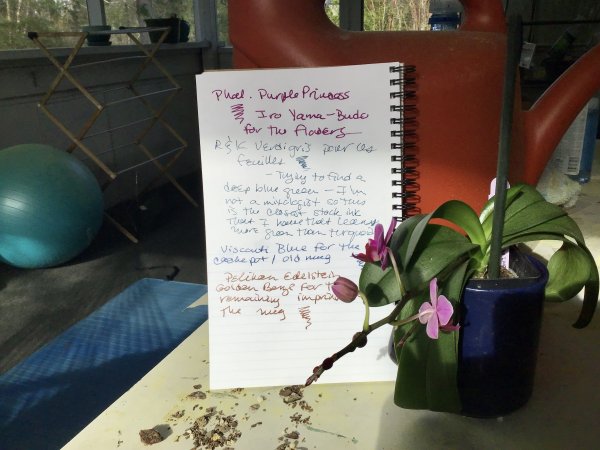 Phal. Purple Princess
Iro Yama-Budo
for the flowers
R & K Verdigris pour les
feuilles
- Trying to find a
deep blue green - I'm
not a mixologist so this
is the closest stock ink
that I have that leans
more green than turquoise
Visconti Blue for the
cachepot / old mug
Pelikan Edelstein
Golden Beryl for
remaining
the mug